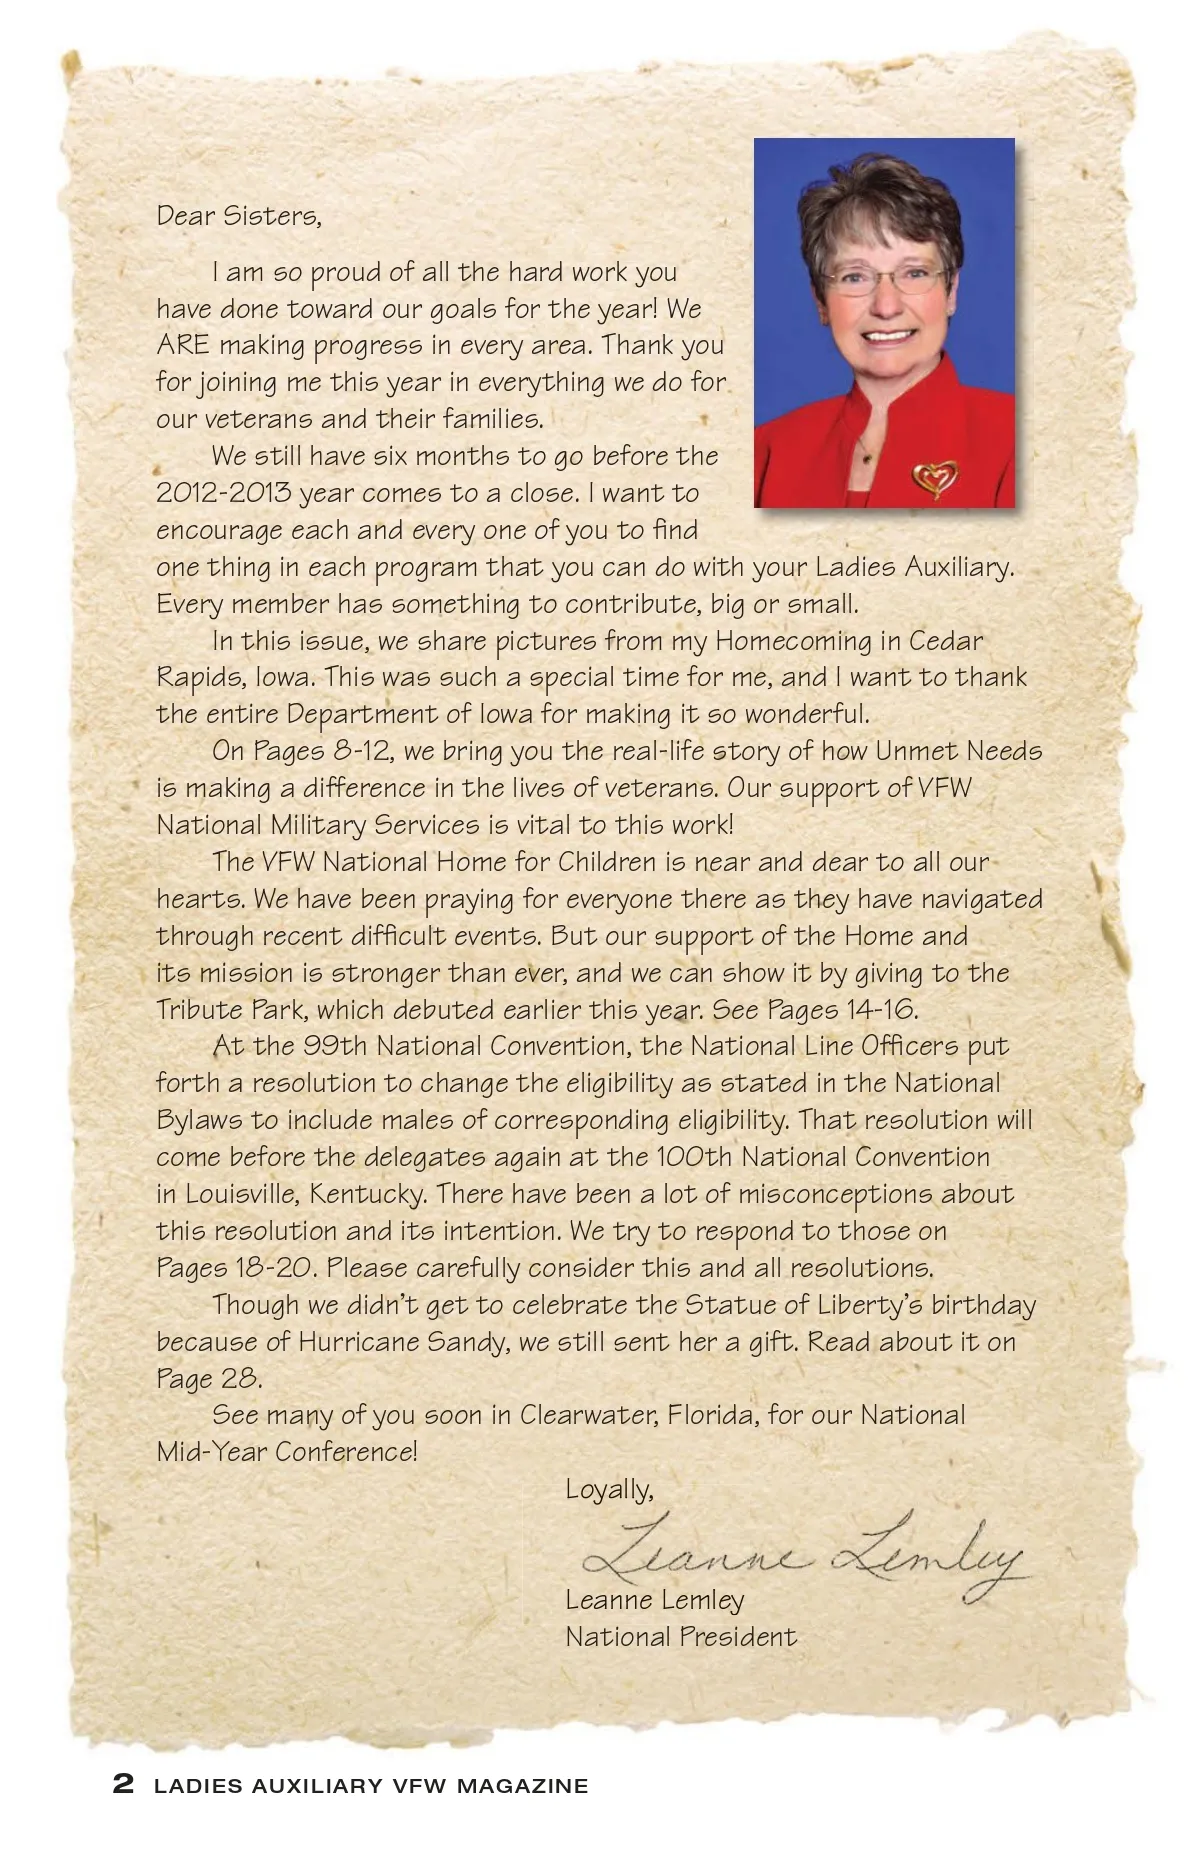 Dear Sisters,
I am so proud of all the hard work you
have done toward our goals for the year! We
ARE making progress in every area. Thank you
for joining me this year in everything we do for
our veterans and their families.
We still have six months to go before the
2012-2013 year comes to a close. I want to
encourage each and every one of you to find
one thing in each program that you can do with your Ladies Auxiliary.
Every member has something to contribute, big or small.
In this issue, we share pictures from my Homecoming in Cedar
Rapids, Iowa. This was such a special time for me, and I want to thank
the entire Department of Iowa for making it so wonderful.
On Pages 8-12, we bring you the real-life story of how Unmet Needs
is making a difference in the lives of veterans. Our support of VFW
National Military Services is vital to this work!
The VFW National Home for Children is near and dear to all our
hearts. We have been praying for everyone there as they have navigated
through recent difficult events. But our support of the Home and
its mission is stronger than ever, and we can show it by giving to the
Tribute Park, which debuted earlier this year. See Pages 14-16.
At the 99th National Convention, the National Line Officers put
forth a resolution to change the eligibility as stated in the National
Bylaws to include males of corresponding eligibility. That resolution will
come before the delegates again at the 100th National Convention
in Louisville, Kentucky. There have been a lot of misconceptions about
this resolution and its intention. We try to respond to those on
Pages 18-20. Please carefully consider this and all resolutions.
Though we didn't get to celebrate the Statue of Liberty's birthday
because of Hurricane Sandy, we still sent her a gift. Read about it on
Page 28.
See many of you soon in Clearwater, Florida, for our National
Mid-Year Conference!
Loyally,
Leanne Lemley
Leanne Lemley
National President
2 LADIES AUXILIARY VFW MAGAZINE